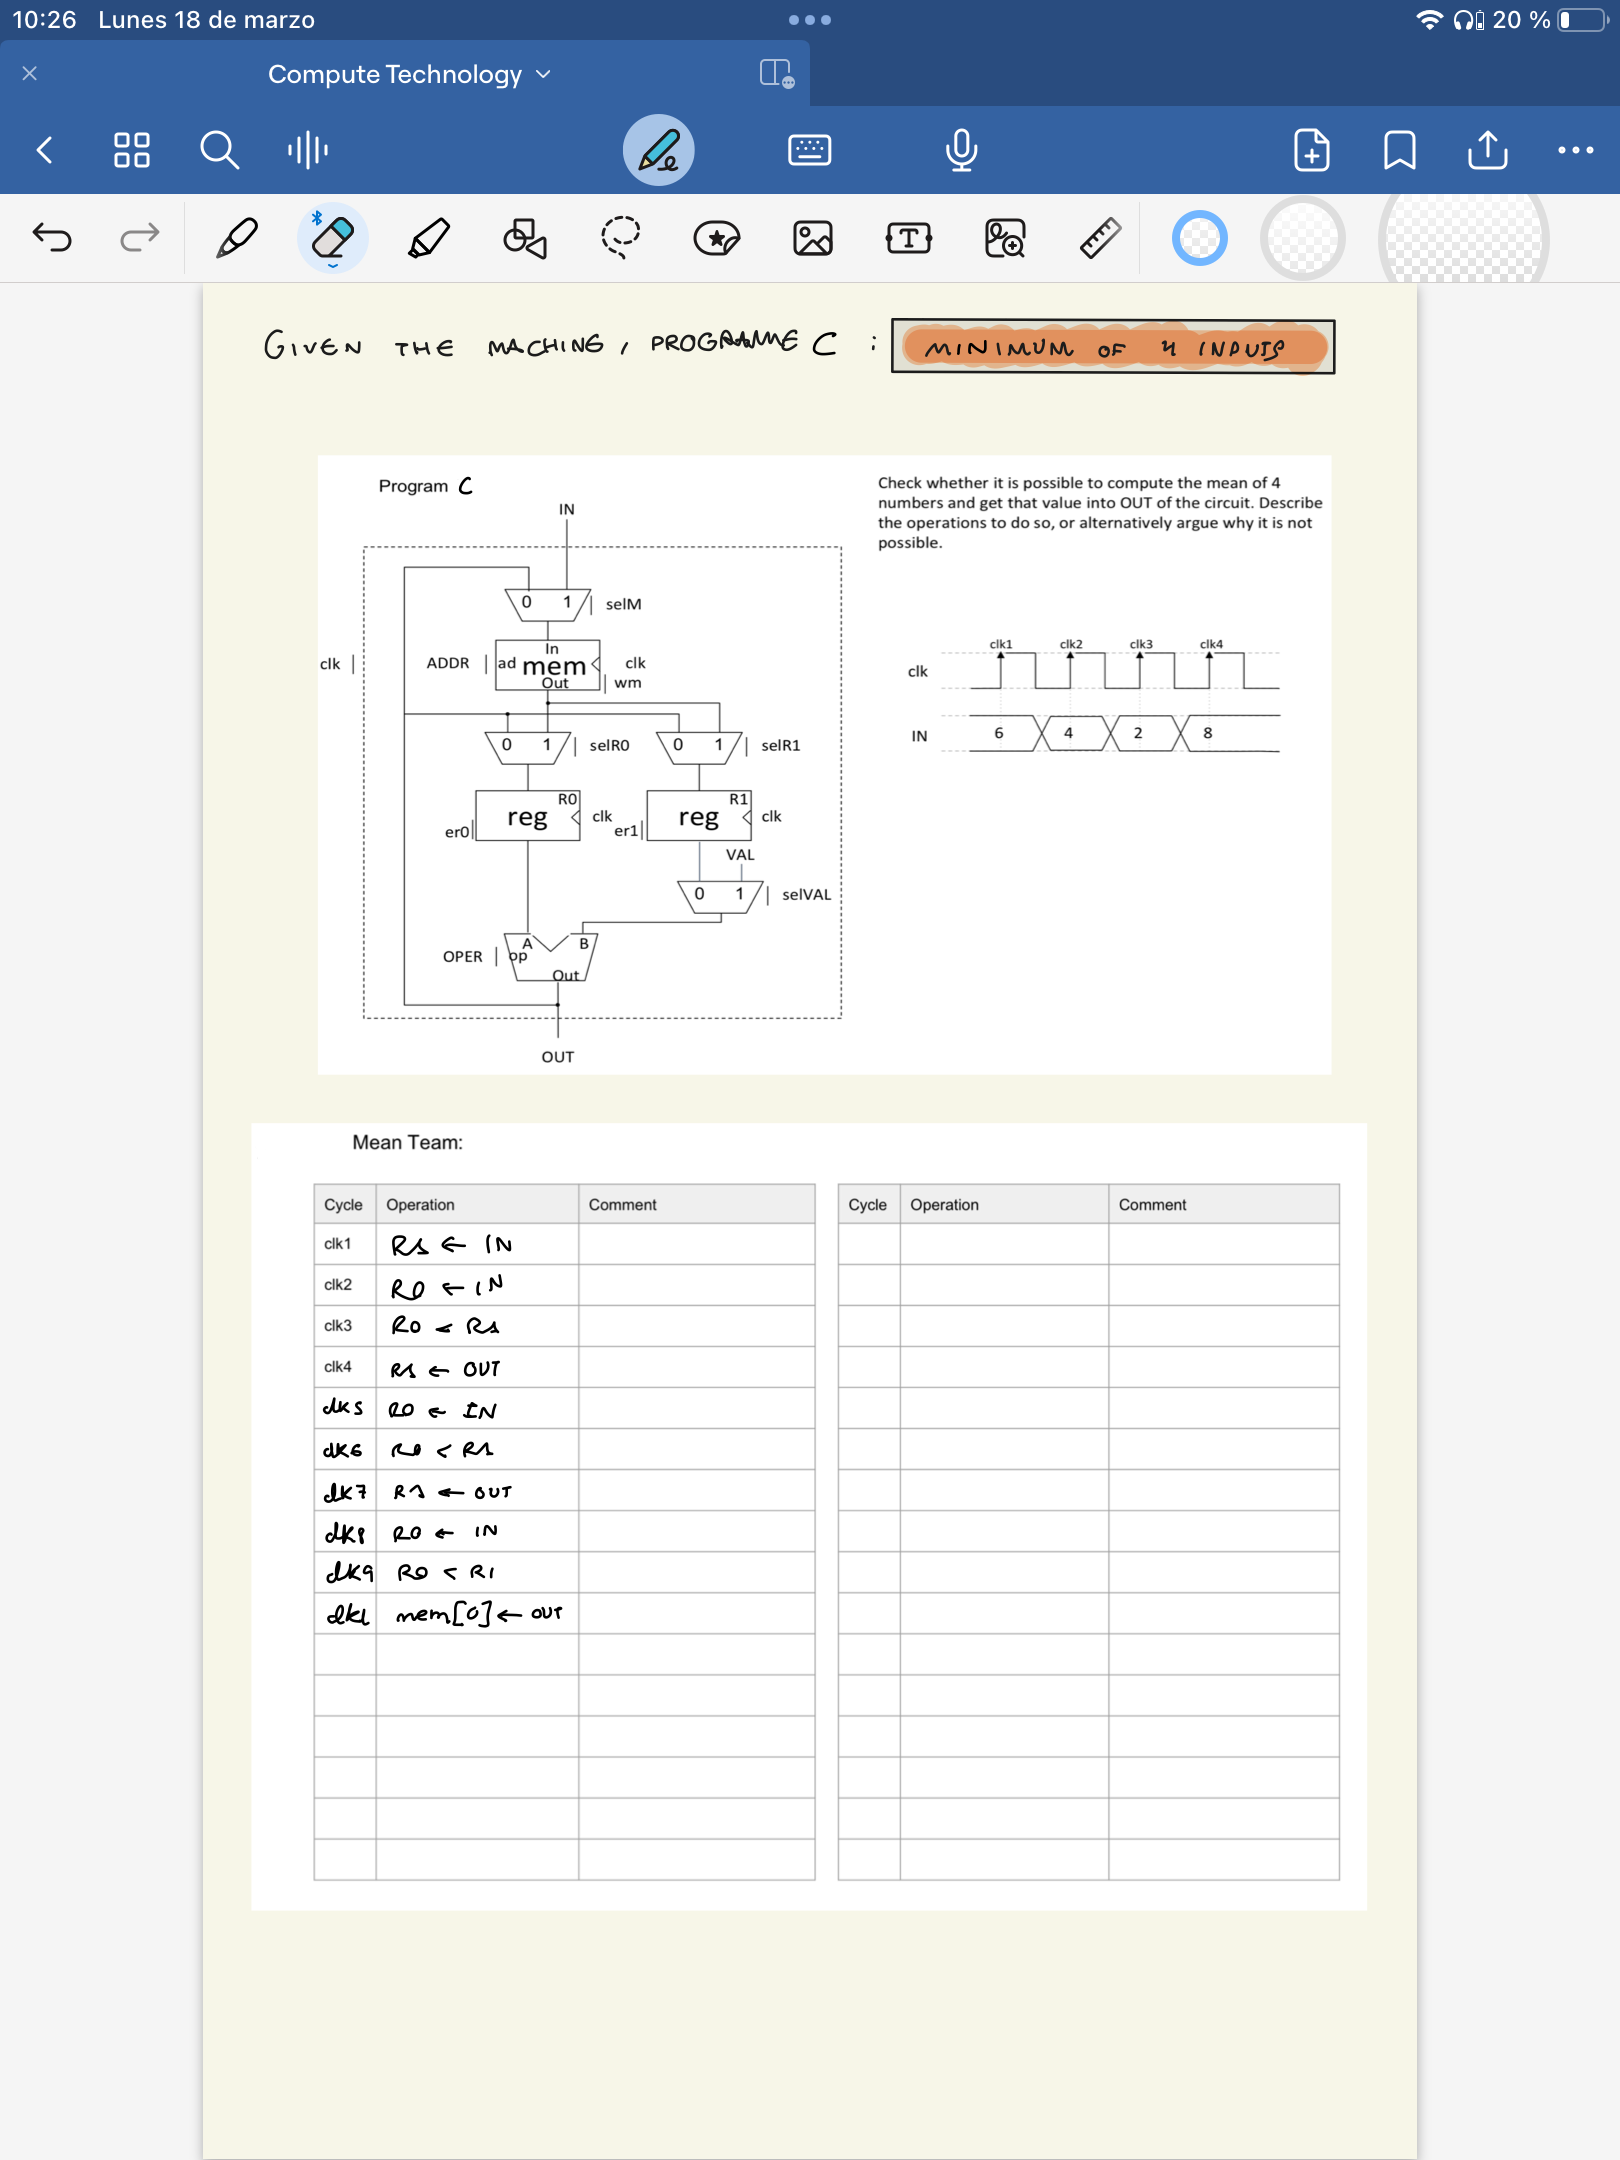 10:26 Lunes 18 de marzo
20 %
Compute Technology
GIVEN THE MACHINE, PROGRAMME C :
MINIMUM OF 4 INPUTS
Program C
IN
0 1 selM
clk
ADDR ad In mem Out clk
wm
0 1 selR0
0 1 selR1
reg R0 clk
er0
reg R1 clk
er1
VAL
0 1 selVAL
OPER op A B
Out
OUT
Check whether it is possible to compute the mean of 4
numbers and get that value into OUT of the circuit. Describe
the operations to do so, or alternatively argue why it is not
possible.
clk1 clk2 clk3 clk4
clk
IN 6 4 2 8
Mean Team:
Cycle Operation Comment
clk1 R1 ← IN
clk2 R0 ← IN
clk3 R0 < R1
clk4 R1 ← OUT
clk5 R0 ← IN
clk6 R0 < R1
clk7 R1 ← OUT
clk8 R0 ← IN
clk9 R0 < R1
mem[0] ← OUT
Cycle Operation Comment